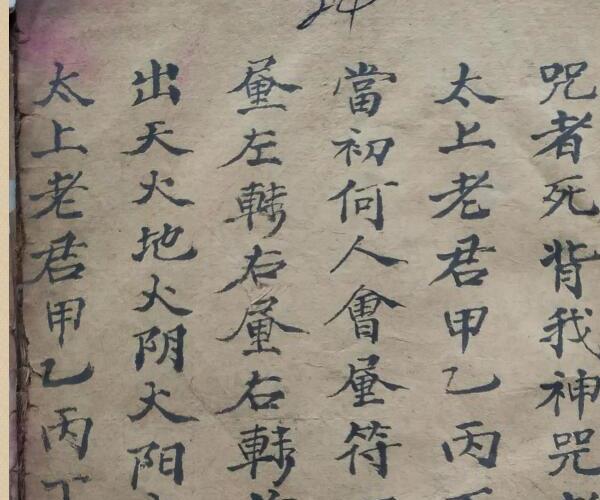 咒者死背我神咒
太上老君甲乙丙
當初何人會𫵷符
𫵷左轉右𫵷右轉
出天火地火阴火阳
太上老君甲乙丙丁